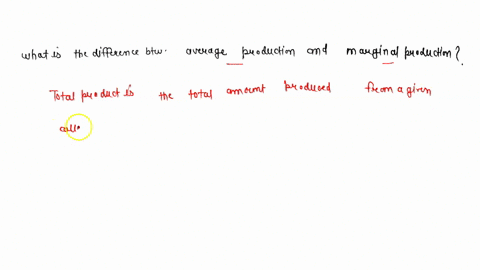 what is the difference btw. average production and marginal production?.
Total product is the total amount produced from a given